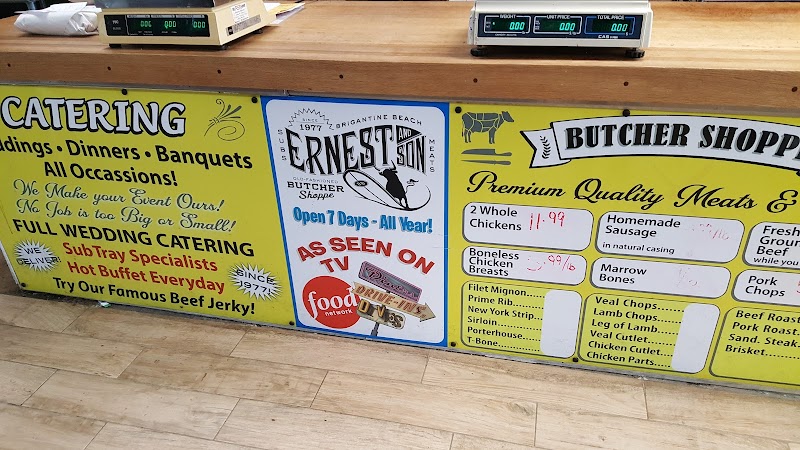 0.00 0.00 0.00
WEIGHT UNIT PRICE TOTAL PRICE
0.00 0.00 0.00
CAS
CATERING
ddings • Dinners • Banquets
All Occassions!
We Make your Event Ours!
No Job is too Big or Small!
FULL WEDDING CATERING
WE DELIVER!
SubTray Specialists
Hot Buffet Everyday
SINCE 1977!
Try Our Famous Beef Jerky!
SINCE 1977
BRIGANTINE BEACH
SUBS
ERNEST AND SON
MEATS
OLD-FASHIONED
BUTCHER
Shoppe
Open 7 Days - All Year!
AS SEEN ON
TV
food
network
Diners
DRIVE-INS
DIVES
BUTCHER SHOPP
Premium Quality Meats &
2 Whole
Chickens
11.99
Homemade
Sausage
in natural casing
Fresh
Groun
Beef
while you
Boneless
Chicken
Breasts
.99/lb
Marrow
Bones
Pork
Chops
Filet Mignon......
Prime Rib......
New York Strip..
Sirloin............
Porterhouse.....
T-Bone............
Veal Chops......
Lamb Chops....
Leg of Lamb....
Veal Cutlet......
Chicken Cutlet..
Chicken Parts...
Beef Roast
Pork Roast.
Sand. Steak.
Brisket......